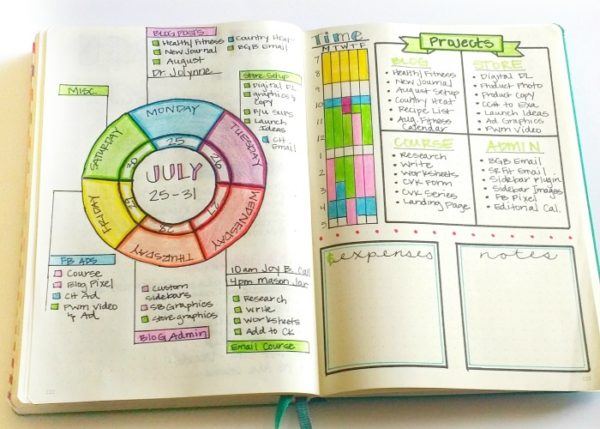 BLOG POSTS
Health/Fitness
New Journal
August
Dr. Jolynne
Country Heat
BGB Email
Store Setup
Digital DL
graphics &
copy
P/U SUPS
Launch
Ideas
CH
Email
MISC.
MONDAY
TUESDAY
WEDNESDAY
THURSDAY
FRIDAY
SATURDAY
25
26
27
28
29
30
JULY
25-31
FB ADS
Course
Blog Pixel
CH Ad
PWM Video
& Ad
Custom
sidebars
SB Graphics
Store graphics
Blog Admin
10am Joy B. Call
4pm Mason Jar
Research
Write
Worksheets
Add to CK
Email Course
Time
M T W T F
7
8
9
10
11
12
1
2
3
4
Projects
BLOG
Health/Fitness
New Journal
August Setup
Country Heat
Recipe List
Aug. Fitness
Calendar
STORE
Digital DL
Product Photo
Product Copy
CCH to Exa
Launch Ideas
Ad Graphics
PWM Video
COURSE
Research
Write
Worksheets
CVK Form
CVK Series
Landing Page
ADMIN
BGB Email
SRFit Email
Sidebar Plugin
Sidebar Images
FB Pixel
Editorial Cal.
$expenses
notes